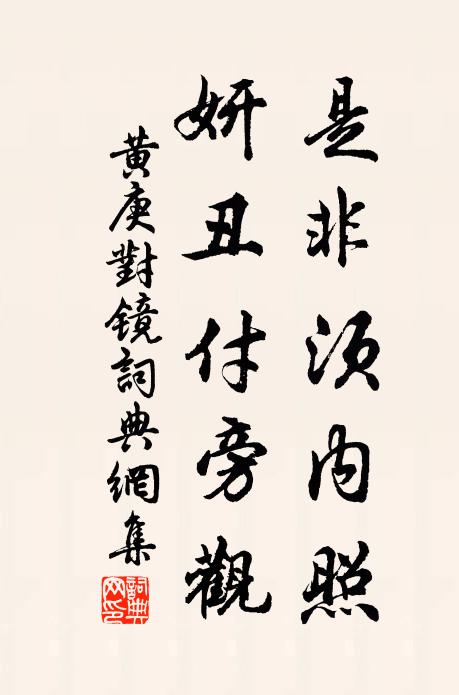 是非須内照
妍丑付旁觀
黄庚對鏡詞典網集
詞典网印